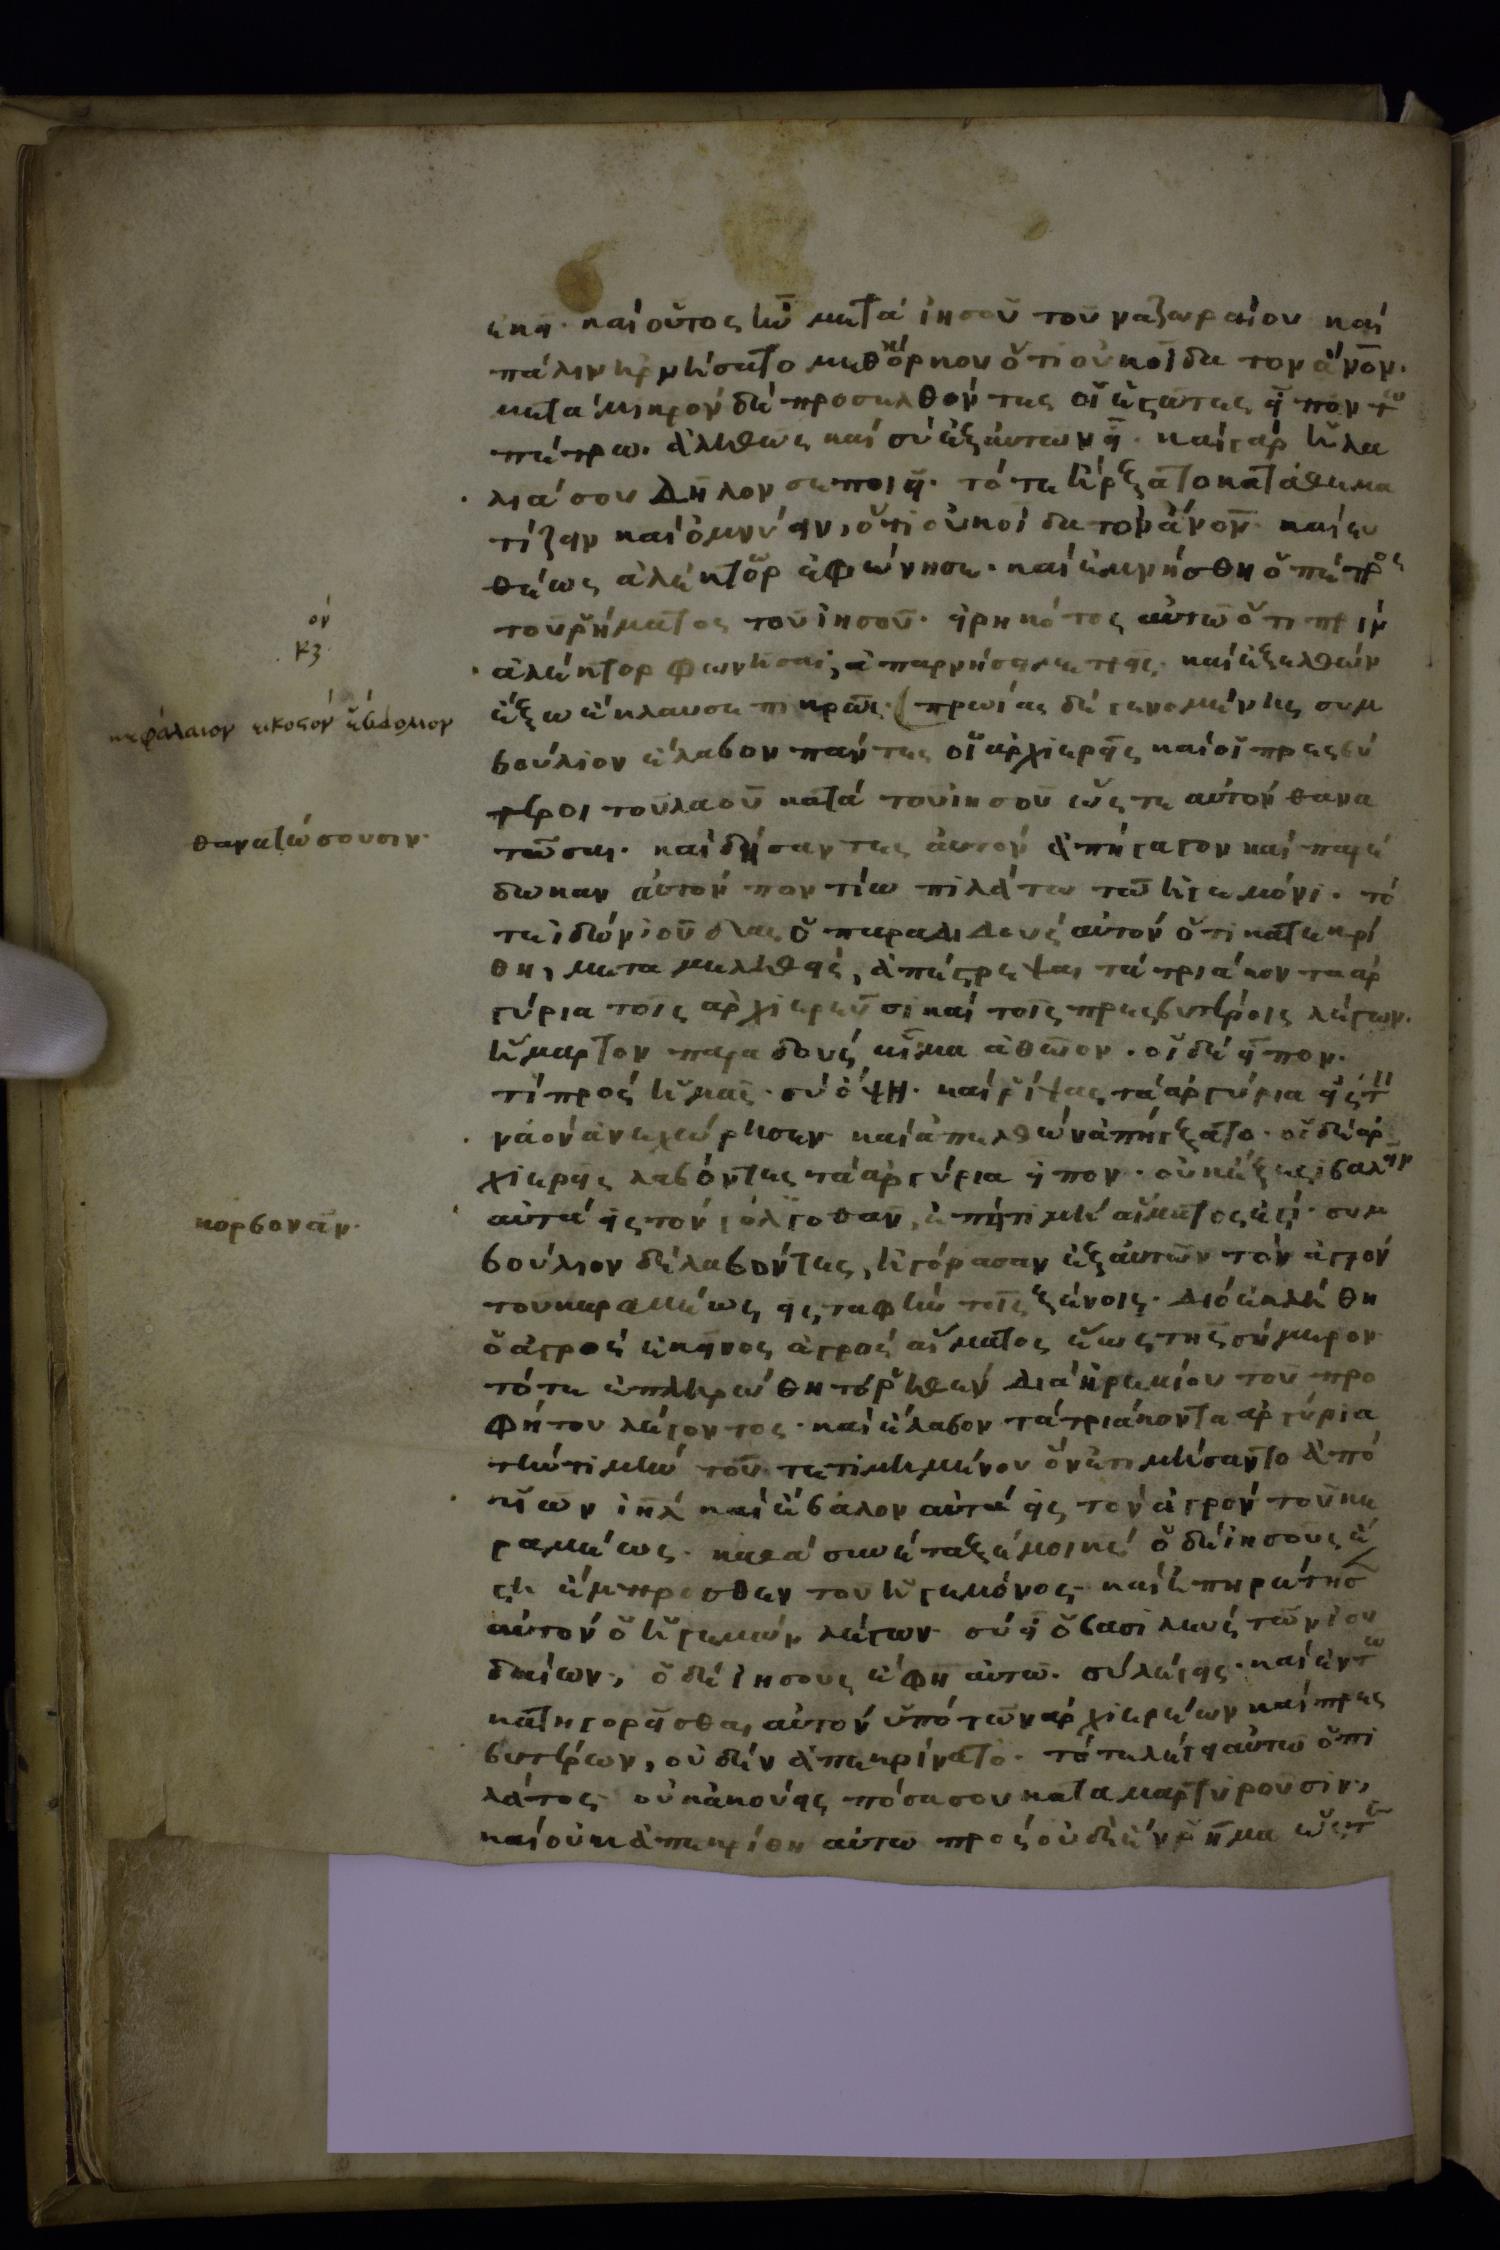 ἐκεῖ· καὶ οὗτος ἦν μετὰ ἰησοῦ τοῦ ναζωραίου καὶ
πάλιν ἠρνήσατο μεθ ὅρκου ὅτι οὐκ οἶδα τὸν ἄνον·
μετὰ μικρὸν δὲ προσελθόντες οἱ ἑστῶτες εἶπον τῶ
πέτρω· ἀληθῶς καὶ σὺ ἐξ αὐτῶν εἶ· καὶ γὰρ ἡ λα
λιά σου δῆλον σε ποιεῖ· τότε ἤρξατο καταθεμα
τίζειν καὶ ὀμνύειν, ὅτι οὐκ οἶδα τὸν ἄνον· καὶ εὐ
θέως ἀλέκτωρ ἐφώνησε· καὶ ἐμνήσθη ὁ πέτρος
τοῦ ῥήματος τοῦ ἰησοῦ· εἰρηκότος αὐτῶ ὅτι πρὶν
ἀλέκτορ φωνῆσαι, ἀπαρνήσει με τρεῖς· καὶ ἐξελθὼν
ἔξω ἔκλαυσε πικρῶς· πρωίας δὲ γενομένης συμ
βούλιον ἔλαβον πάντες οἱ ἀρχιερεῖς καὶ οἱ πρεσβύ
τεροι τοῦ λαοῦ κατὰ τοῦ ἰησοῦ ὥστε αὐτὸν θανα
τῶσαι· καὶ δήσαντες αὐτὸν ἀπήγαγον καὶ παρέ
δωκαν αὐτὸν ποντίω πιλάτω τῶ ἡγεμόνι· τό
τε ἰδὼν ἰούδας ὁ παραδιδοὺς αὐτὸν ὅτι κατεκρί
θη, μεταμεληθεὶς, ἀπέστρεψαι τὰ τριάκοντα ἀρ
γύρια τοῖς ἀρχιερεῦσι καὶ τοῖς πρεσβυτέροις λέγων·
ἥμαρτον παραδοὺς αἷμα ἀθῶον· οἱ δὲ εἶπον·
τί πρὸς ἡμᾶς· σὺ ὄψη· καὶ ῥίψας τὰ ἀργύρια εἰς τ
ναὸν ἀνεχώρησεν καὶ ἀπελθὼν ἀπήγξατο· οἱ δὲ ἀρ
χιερεῖς λαβόντες τὰ ἀργύρια εἶπον· οὐκ ἔξεστι βαλεῖν
αὐτὰ εἰς τὸν γολγοθαν, ἐπεὶ τιμὴ αἵματος ἐστὶ· συμ
βούλιον δὲ λαβόντες, ἠγόρασαν ἐξ αὐτῶν τὸν ἀγρὸν
τοῦ κεραμέως εἰς ταφὴν τοῖς ξένοις· διὸ ἐκλήθη
ὁ ἀγρὸς ἐκεῖνος ἀγρὸς αἵματος ἕως τῆς σήμερον
τότε ἐπληρώθη τὸ ῥηθὲν διὰ ἰερεμίου τοῦ προ
φήτου λέγοντος· καὶ ἔλαβον τὰ τριάκοντα ἀργύρια
τὴν τιμὴν τοῦ τετιμημένου ὃν ἐτιμήσαντο ἀπὸ
υἱῶν ἰηλ καὶ ἔβαλον αὐτὰ εἰς τὸν ἀγρὸν τοῦ κε
ραμέως· καθὰ συνέταξέ μοι κς ὁ δὲ ἰησοῦς ἔ
στη ἔμπροσθεν τοῦ ἡγεμόνος· καὶ ἐπηρώτησ
αὐτὸν ὁ ἡγεμὼν λέγων· σὺ εἶ ὁ βασιλεὺς τῶν ἰου
δαίων, ὁ δὲ ἰησοῦς ἔφη αὐτῶ· σὺ λέγεις· καὶ ἐν τῶ
κατηγορεῖσθαι αὐτὸν ὑπὸ τῶν ἀρχιερέων καὶ πρεσ
βυτέρων, οὐδὲν ἀπεκρίνατο· τότε λέγει αὐτῶ ὁ πι
λάτος· οὐκ ἀκούεις πόσα σου καταμαρτυροῦσιν,
καὶ οὐκ ἀπεκρίθη αὐτῶ πρὸς οὐδὲ ἓν ῥῆμα ὥστε
ον
κζ
κεφάλαιον εικοστόν ἕβδομον
θανατώσουσιν·
κορβονᾶν·